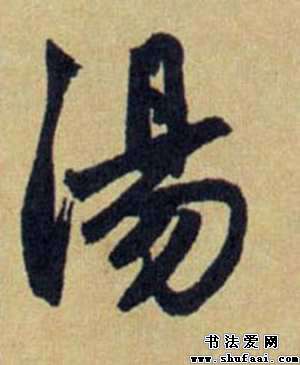 湯
书法爱网
www.shufaai.com